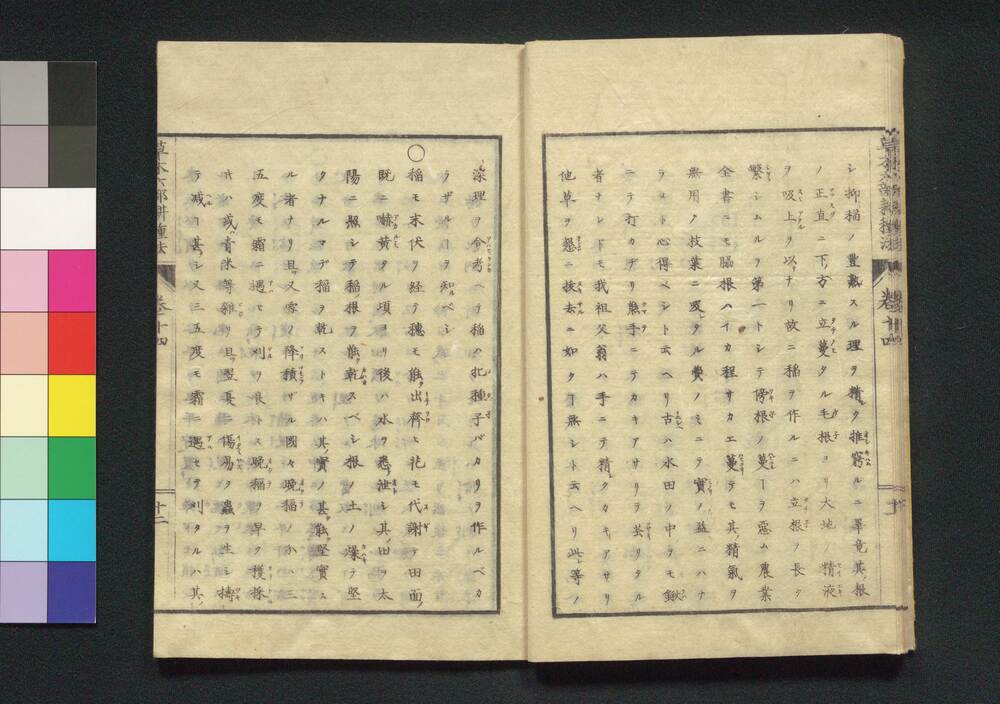 シ抑稲ノ豊熟スル理ヲ精ク推窮ルニ畢竟其根
ノ正直ニ下方ニ立蔓タル毛根ヨリ大地ノ精液
ヲ吸上ヲ以ナリ故ニ稲ヲ作ルニハ立根ヲ長ク
繁シムルヲ第一トシテ浮根ノ蔓ヿヲ悪ム農業
全書ニモ脇根ハイカ程サカエ蔓テモ其精氣ヲ
無用ノ枝葉ニ吸タル費ノミニテ實ノ益ニハナ
ラヌト心得ベシト云ヘリ古ハ水田ノ中ヲモ鍬
ニテ打カデリ熊手ニテカキアサリテ芸リタル
者ナレドモ我祖父翁ハ手ニテ精クカキアサリ
他草ヲ懇ニ抜去ニ如クヿ無シト云ヘリ此等ノ
深理ヲ合考ヘテ稲ハ牝種子バカリヲ作ルベカ
ラザルヿヲ知ルベシ
○稲モ末伏ヲ経テ穂モ能出齊ヒ花モ代謝テ田面
既ニ嚇黄タル頃ヨリ後ハ水ヲ悉泄シ其田ヲ太
陽ニ照シテ稲根ヲ能乾スベシ根ノ土ノ燥テ堅
クナルマデ稲ヲ乾ストキハ其實ノ甚能堅實ス
ル者ナリ且又雪ノ降積ザル國々晩稲ノ分ハ三
五度モ霜ニ遇セテ刈ヲ良トス晩稲ヲ早ク獲採
トハ或ハ青米等雑リ且翌夏ニ傷易ク蟲ヲ生シ搏
テ減ヿ甚シ又三五度モ霜ニ遇セテ刈タルハ其
草木六部耕種法
巻十四
十二